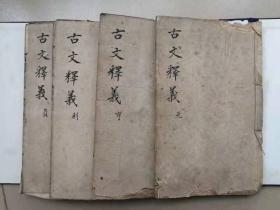 古文釋義 元
古文釋義 亨
古文釋義 利
古文釋義 貞